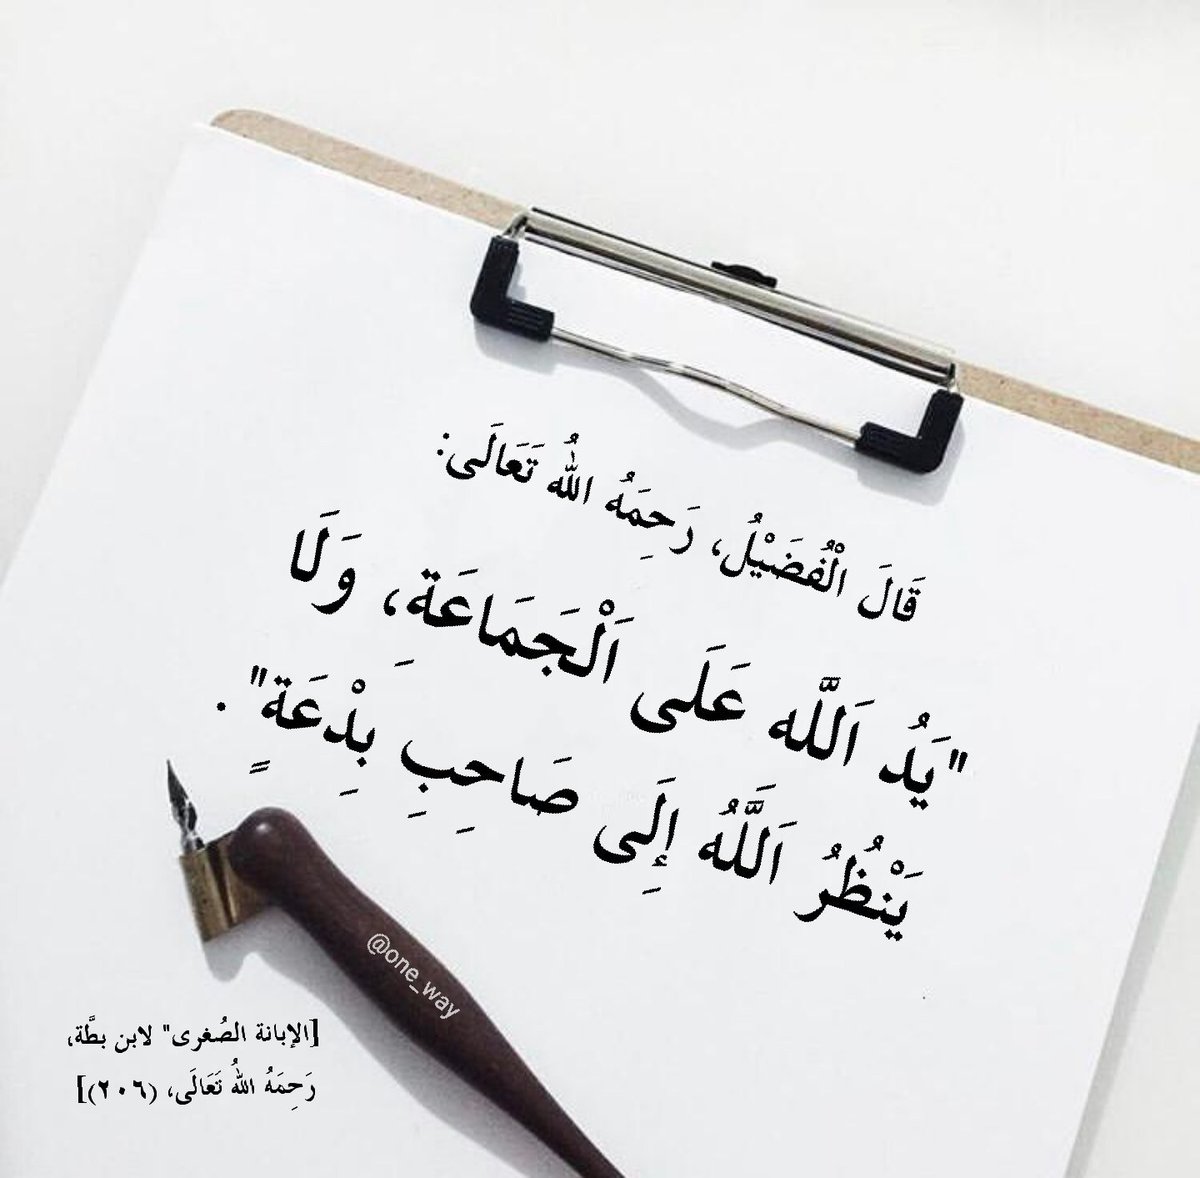 قَالَ الْفُضَيْلُ، رَحِمَهُ اللهُ تَعَالَى:
"يَدُ اَللَّه عَلَى اَلْجَمَاعَةِ، وَلَا
يَنْظُرُ اَللَّهُ إِلَى صَاحِبِ بِدْعَةٍ".
@one_way
[الإبانة الصُغرى" لابن بطَّة،
رَحِمَهُ اللهُ تَعَالَى، (٢٠٦)]